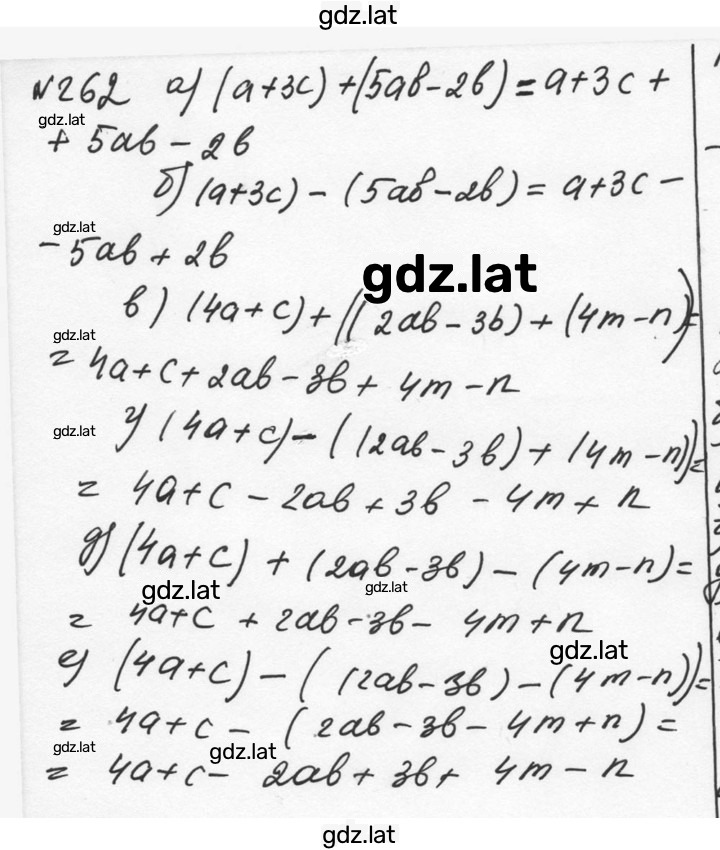 gdz.lat
№262 а) (a+3c)+(5ab-2b)=a+3c+
gdz.lat
+5ab-2b
б) (a+3c)-(5ab-2b)=a+3c-
gdz.lat
-5ab+2b
gdz.lat
в) (4a+c)+((2ab-3b)+(4m-n))=
gdz.lat
=4a+c+2ab-3b+4m-n
г) (4a+c)-((2ab-3b)+(4m-n))=
gdz.lat
=4a+c-2ab+3b-4m+n
д) (4a+c)+(2ab-3b)-(4m-n)=
gdz.lat
gdz.lat
=4a+c+2ab-3b-4m+n
gdz.lat
е) (4a+c)-((2ab-3b)-(4m-n))=
=4a+c-(2ab-3b-4m+n)=
gdz.lat
gdz.lat
=4a+c-2ab+3b+4m-n
gdz.lat